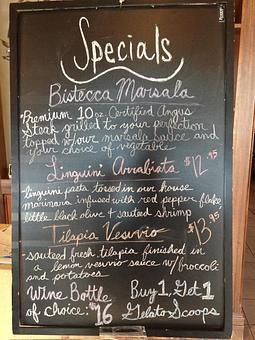 Specials
Bistecca Marsala
Premium 10oz Certified Angus
Steak grilled to your perfection
topped w/our marsala sauce and
your choice of vegetable
Linguini Arrabiata $12.95
-linguini pasta tossed in our house
marinara infused with red pepper flake,
little black olive & sauteed shrimp
Tilapia Vesuvio $13.95
-sauteed fresh tilapia finished in
a lemon vesuvio sauce w/broccoli
and potatoes
Wine Bottle
of choice: $16
Buy 1, Get 1
Gelato Scoops